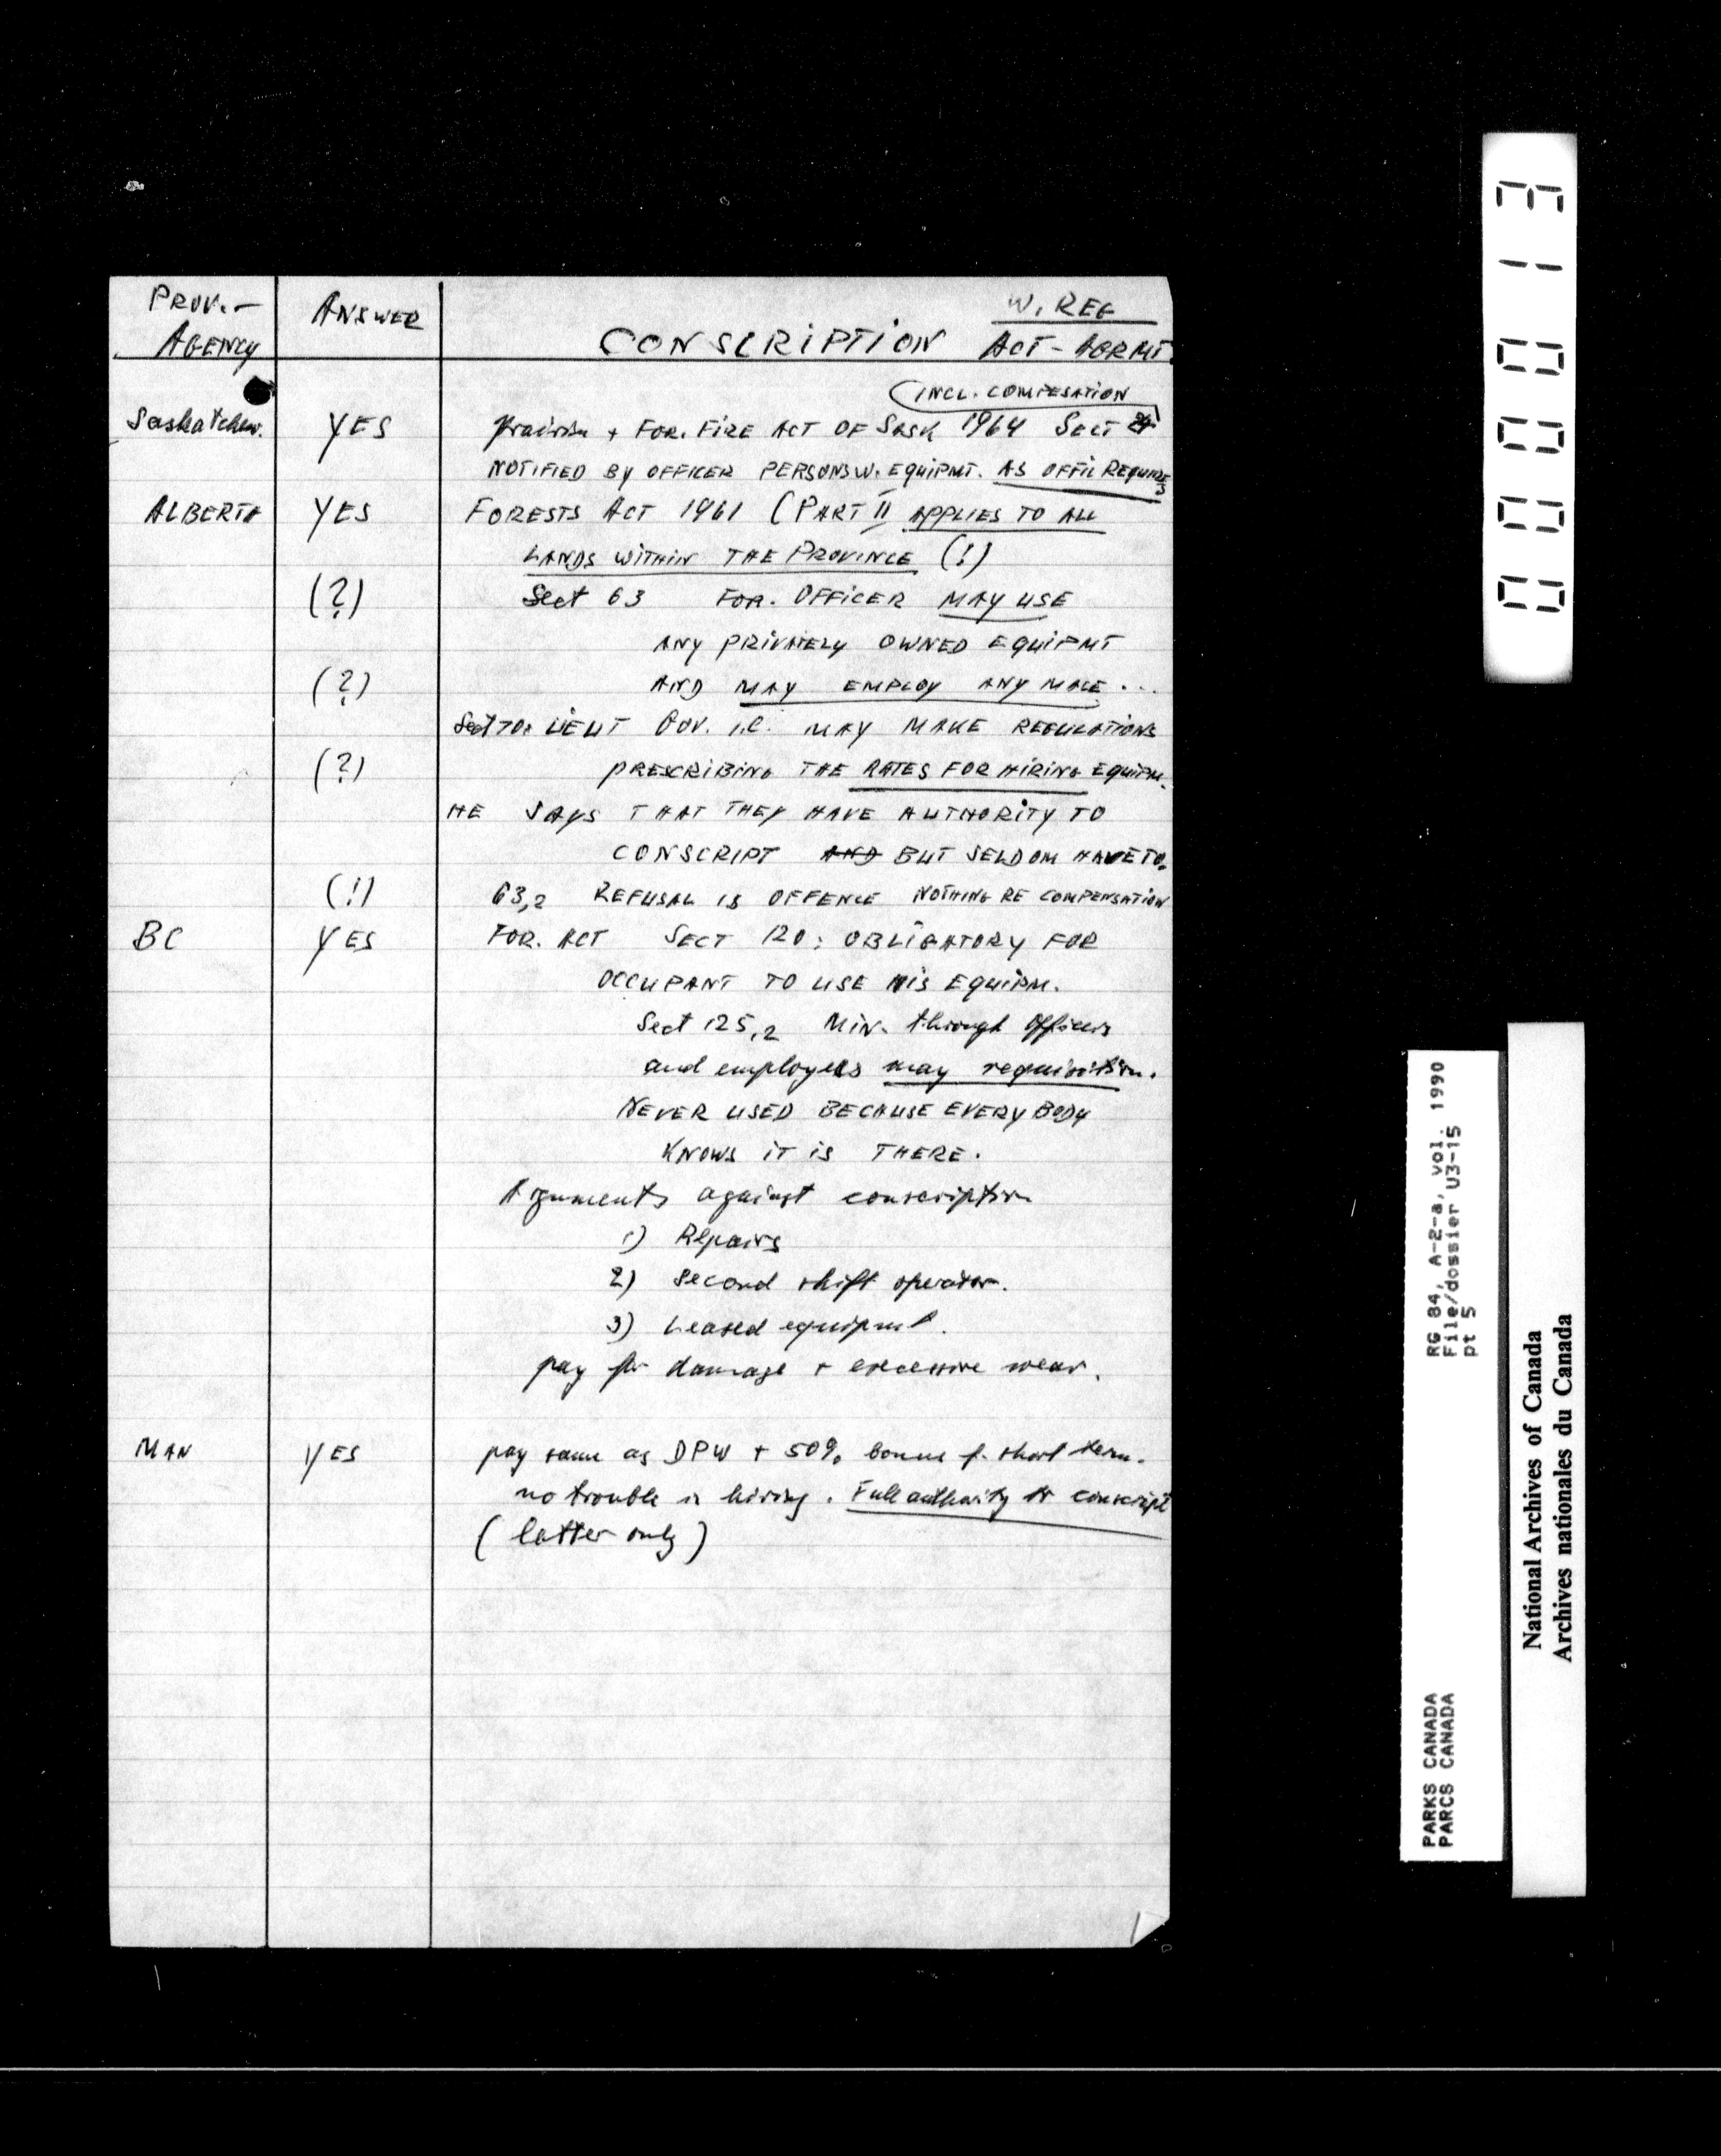 PROV.- ANSWER W. REG
AGENCY CONSCRIPTION ACT - AGRMT.
(INCL. COMPESATION)
Saskatchew. YES Prairie + FOR. FIRE ACT OF SASK 1964 SECT
NOTIFIED BY OFFICER PERSONS W. EQUIPMT. AS OFFIC REQUIRES
ALBERTA YES FORESTS ACT 1961 (PART II APPLIES TO ALL
LANDS WITHIN THE PROVINCE (!)
(?) Sect 63 FOR. OFFICER MAY USE
ANY PRIVATELY OWNED EQUIPMT
(?) AND MAY EMPLOY ANY MALE ...
Sect 70: LIEUT GOV. I.C. MAY MAKE REGULATIONS
(?) PRESCRIBING THE RATES FOR HIRING EQUIPM.
HE SAYS THAT THEY HAVE AUTHORITY TO
CONSCRIPT AND BUT SELDOM HAVE TO.
(!) 63,2 REFUSAL IS OFFENCE NOTHING RE COMPENSATION
BC YES FOR. ACT SECT 120: OBLIGATORY FOR
OCCUPANT TO USE HIS EQUIPM.
Sect 125,2 Min. through officers
and employees may requisition.
NEVER USED BECAUSE EVERYBODY
KNOWS IT IS THERE.
Arguments against conscription
1) Repairs
2) Second shift operator.
3) Leased equipment.
pay for damage + excessive wear.
MAN YES pay same as DPW + 50% bonus f. short term.
no trouble in hiring. Full authority to conscript
(latter only)
000013
RG 84, A-2-a, vol. 1990
File/dossier U3-15
pt 5
PARKS CANADA
PARCS CANADA
National Archives of Canada
Archives nationales du Canada